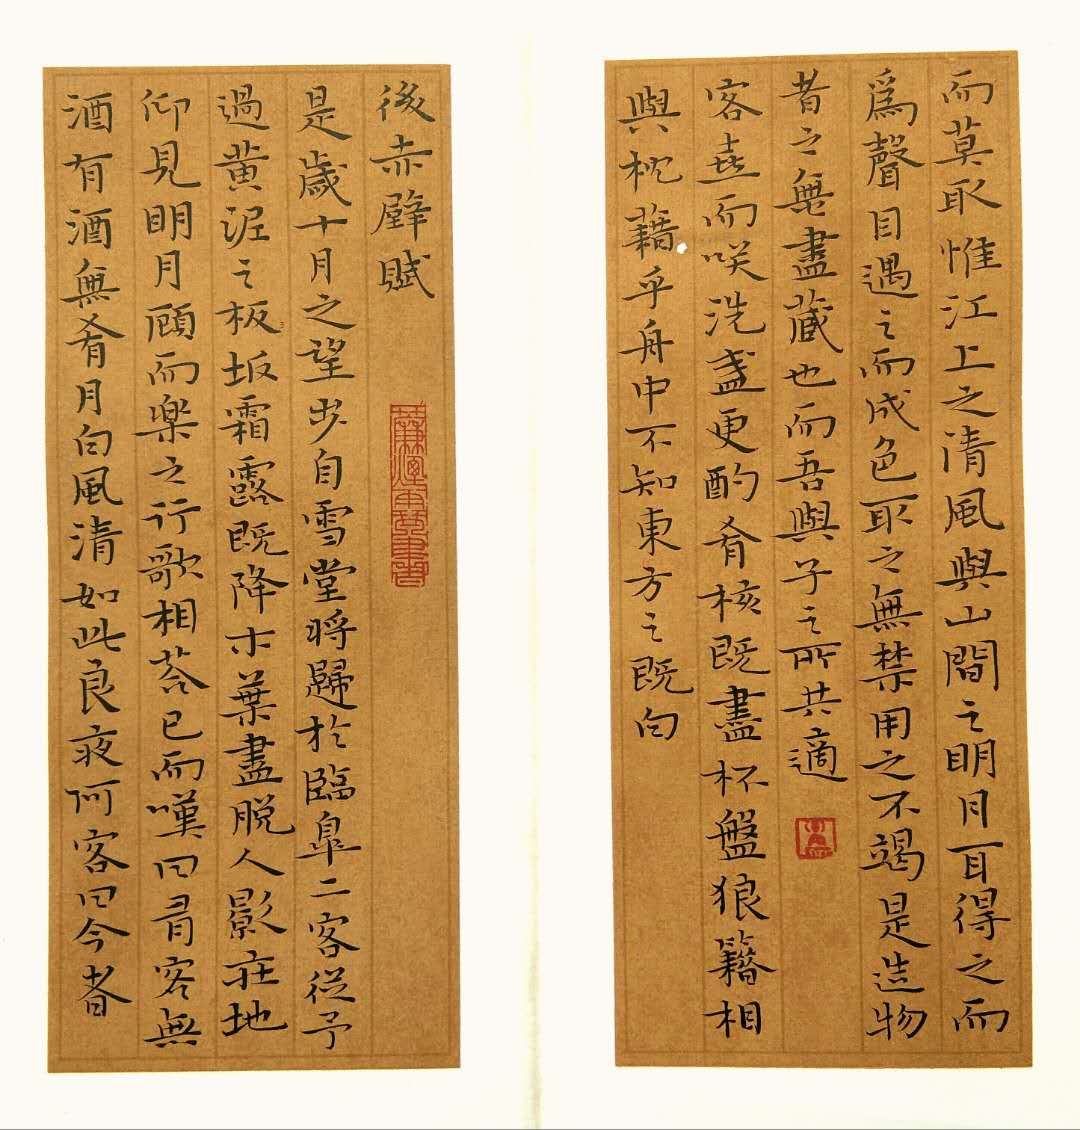 而莫取惟江上之清風與山間之明月耳得之而
爲聲目遇之而成色取之無禁用之不竭是造物
者之無盡蔵也而吾與子之所共適
客喜而咲洗盞更酌肴核既盡杯盤狼籍相
與枕藉乎舟中不知東方之既白
後赤壁賦
是歲十月之望步自雪堂將歸於臨皐二客從予
過黄泥之板坂霜露既降木葉盡脱人影在地
仰見明月顧而樂之行歌相荅已而嘆曰有客無
酒有酒無肴月白風清如此良夜何客曰今者